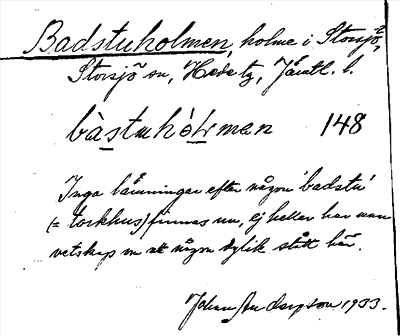 Badstuholmen, holme i Storsjö,
Storsjö sn, Hede tg, Jämtl. l.
bàstuhòlmen 148
Inga lämningar efter någon 'badstu'
(= torkhus) finnas nu, ej heller har man
vetskap om att någon dylik stått här.
Johan Anderzson 1933.